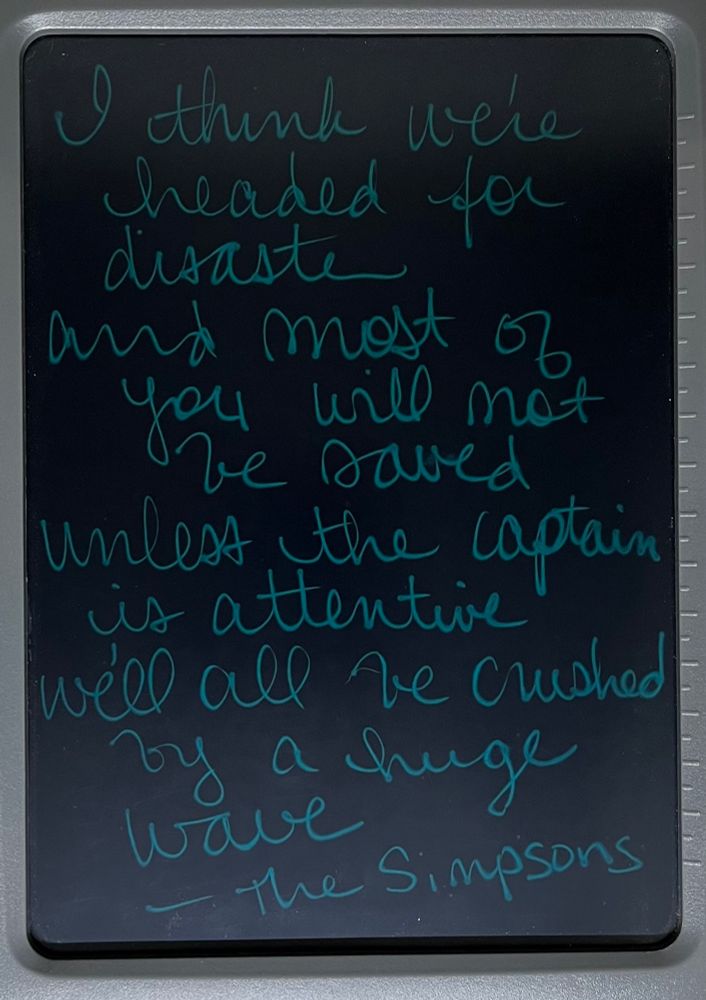 I think we're
headed for
disaster
and most of
you will not
be saved
unless the captain
is attentive
we'll all be crushed
by a huge
wave
— The Simpsons